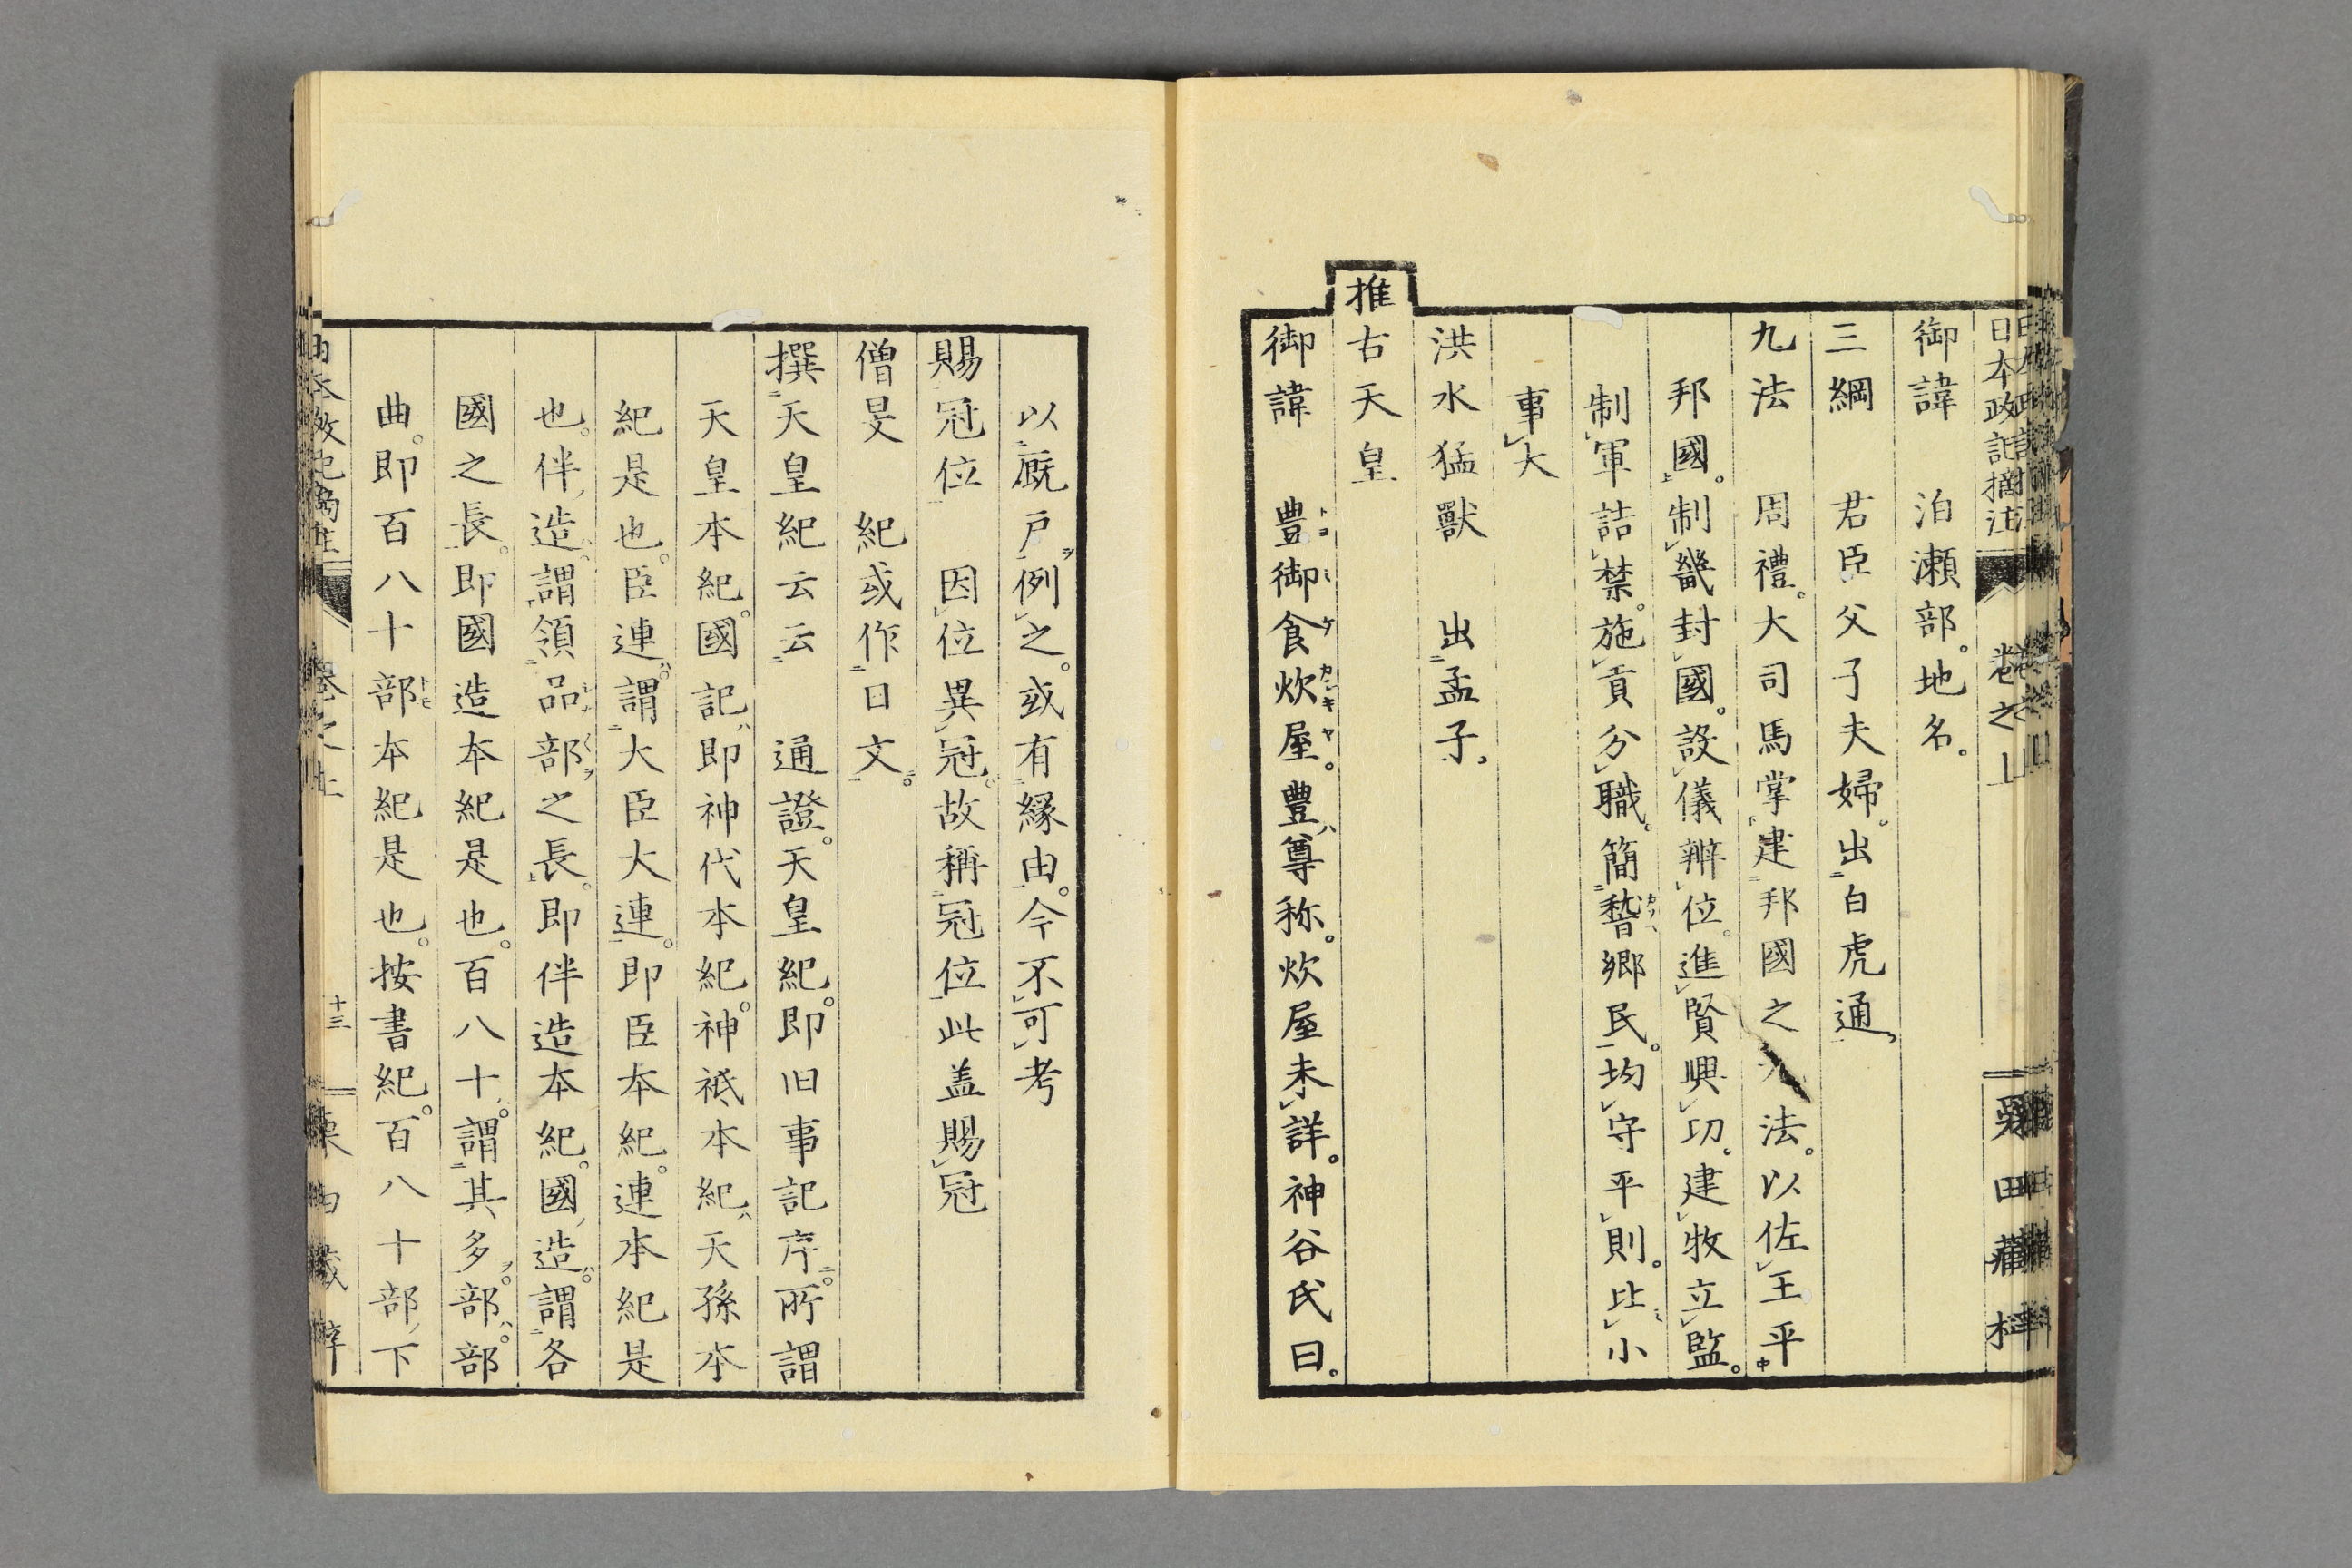 日本政記摘注 卷之上
御諱 泊瀬部。地名。
三綱 君臣父子夫婦。出白虎通。
九法 周禮。大司馬掌建邦國之九法。以佐王平
邦國。制畿封國。設儀辨位。進賢興功。建牧立監。
制軍詰禁。施貢分職。簡暬郷民。均守平則。比小
事大
洪水猛獸 出孟子。
推古天皇
御諱 豊御食炊屋。豊尊称。炊屋未詳。神谷氏曰。
以厩戸例之。或有縁由。今不可考
賜冠位 因位異冠。故稱冠位此盖賜冠
僧旻 紀或作日文。
撰天皇紀云云 通證。天皇紀。即旧事記序。所謂
天皇本紀。國記即神代本紀。神祇本紀天孫本
紀是也。臣連謂大臣大連。即臣本紀。連本紀是
也。伴造。謂領品部之長。即伴造本紀。國造。謂各
國之長。即國造本紀是也。百八十。謂其多。部。部
曲。即百八十部本紀是也。按書紀。百八十部下
十三